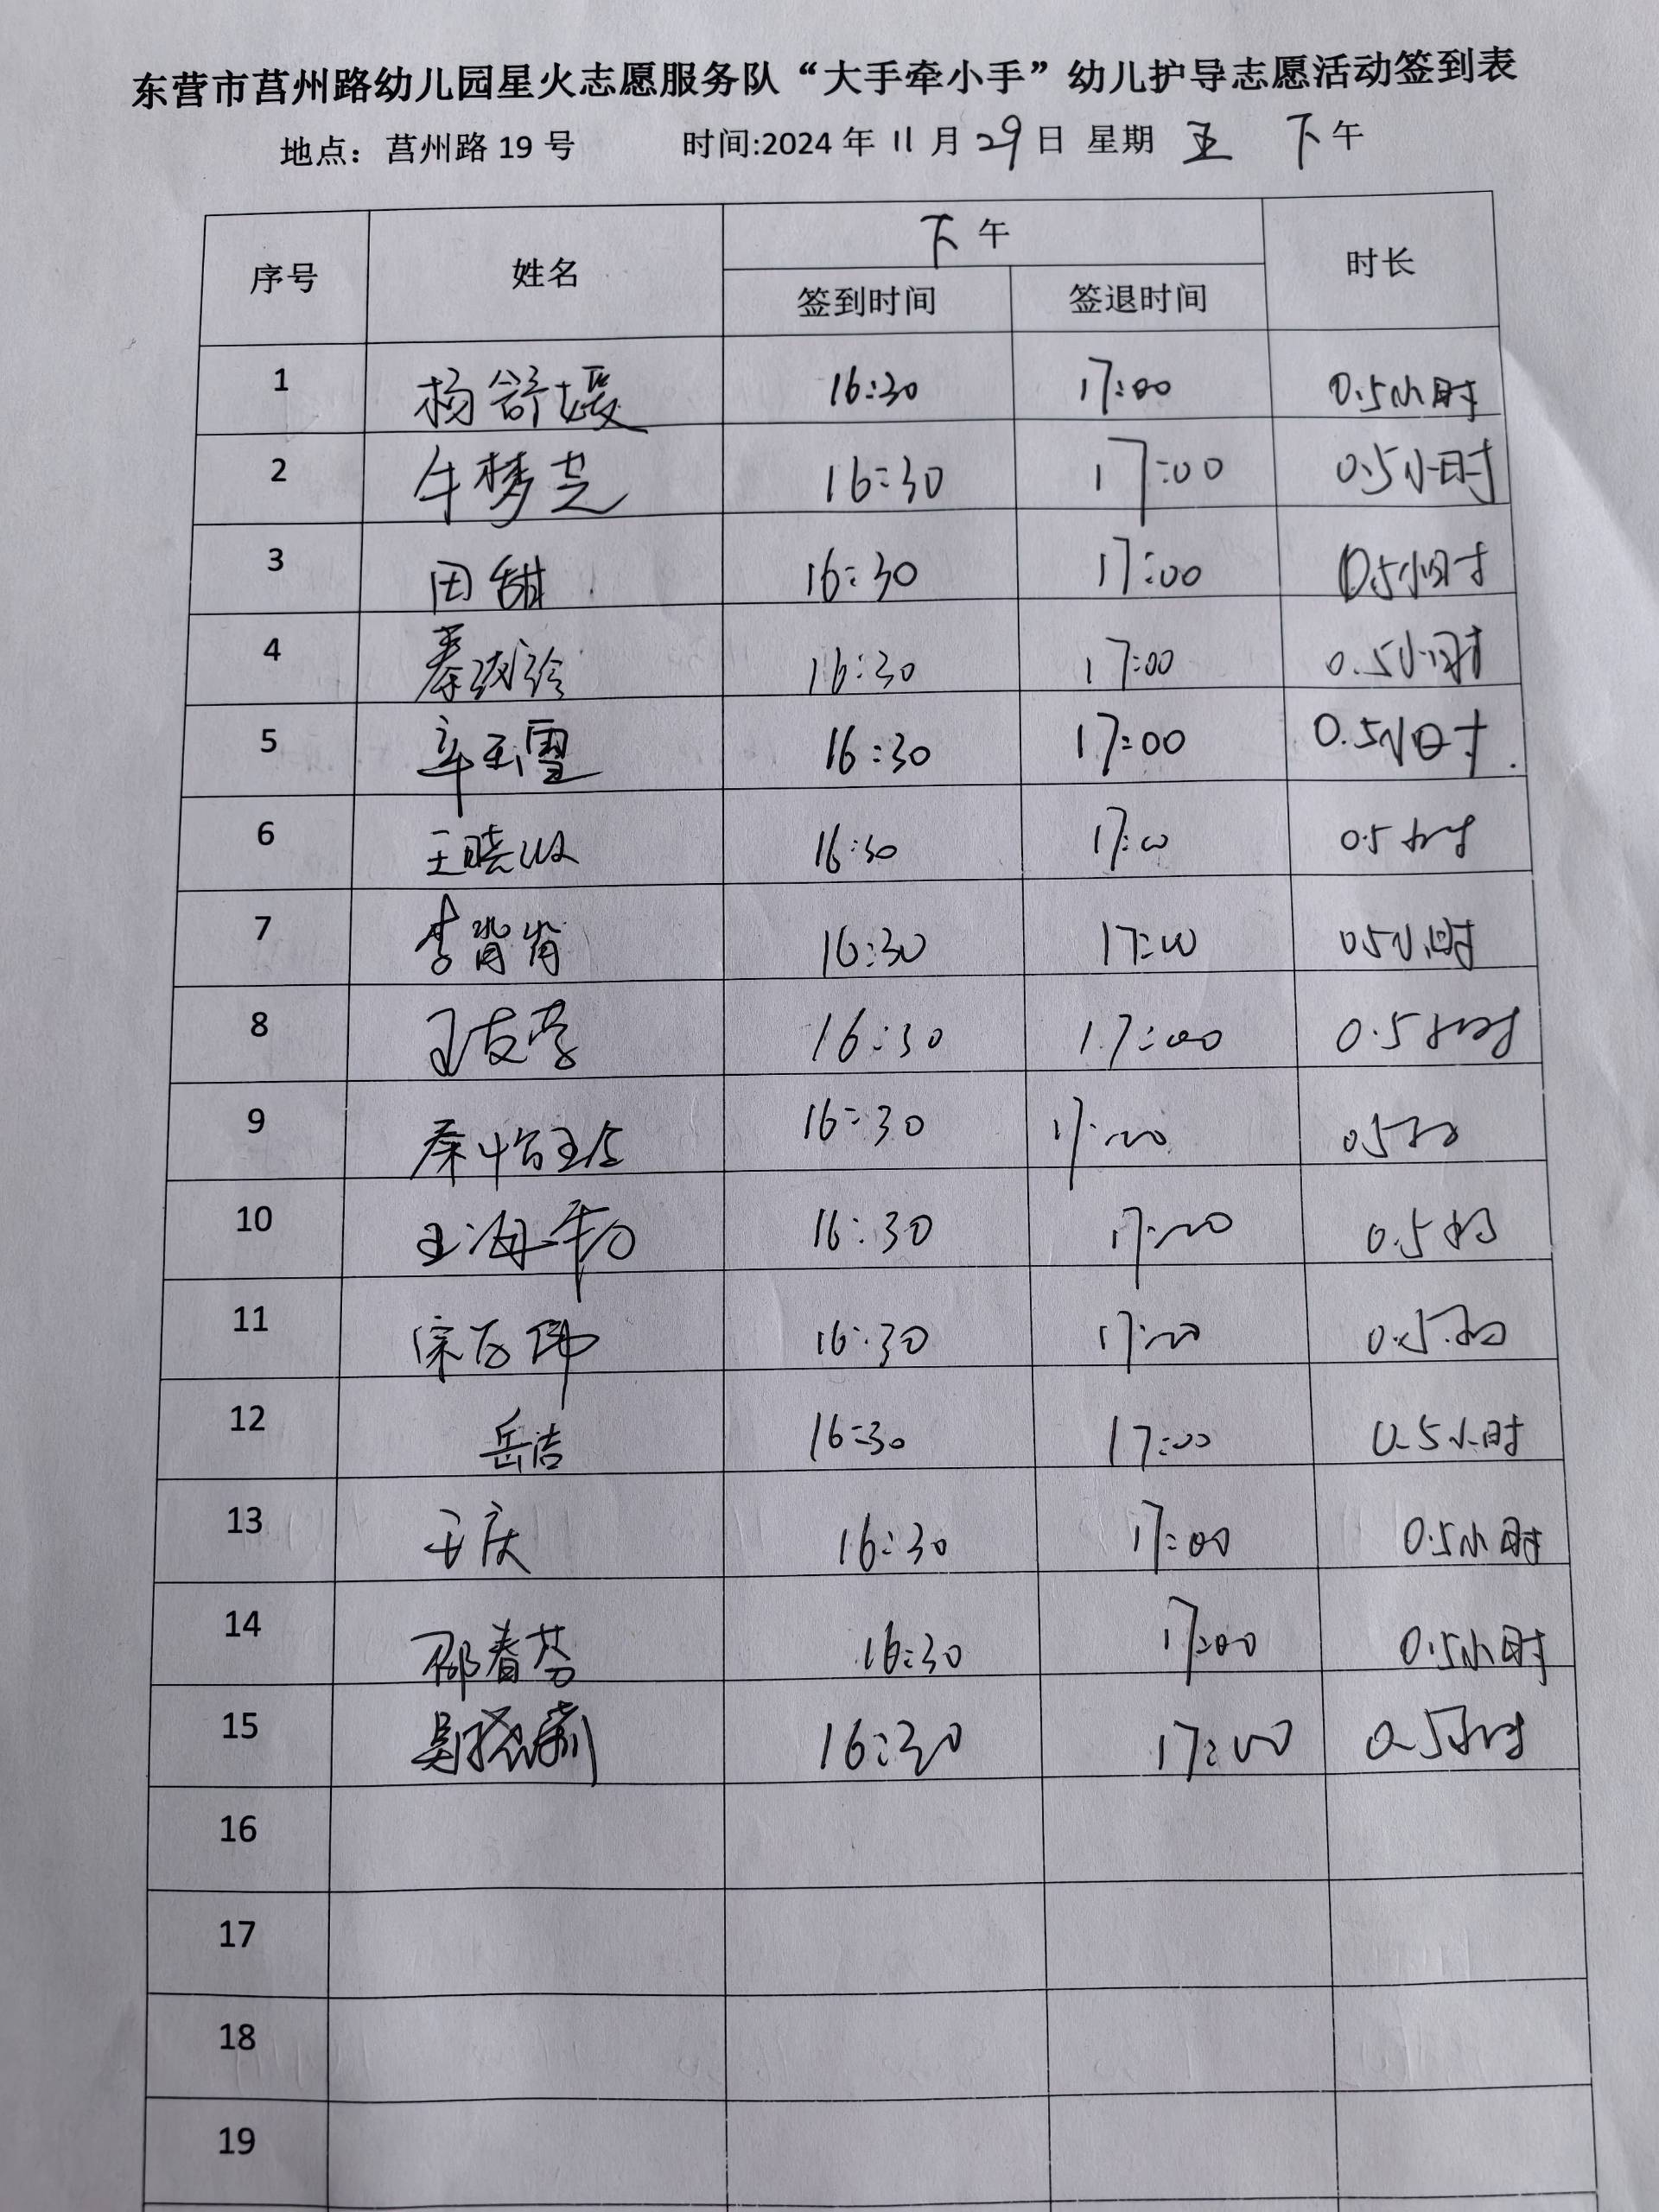 东营市莒州路幼儿园星火志愿服务队“大手牵小手”幼儿护导志愿活动签到表
地点：莒州路 19 号 时间:2024 年 11 月 29 日 星期 五 下午
序号 姓名 下午 时长
签到时间 签退时间
1 杨舒媛 16:30 17:00 0.5小时
2 牛梦芝 16:30 17:00 0.5小时
3 田甜 16:30 17:00 0.5小时
4 秦 16:30 17:00 0.5小时
5 辛玉雪 16:30 17:00 0.5小时
6 王晓 16:30 17:00 0.5小时
7 李背背 16:30 17:00 0.5小时
8 王友 16:30 17:00 0.5小时
9 秦怡玲 16:30 17:00 0.5小时
10 王海韵 16:30 17:00 0.5小时
11 宗 16:30 17:00 0.5小时
12 岳洁 16:30 17:00 0.5小时
13 王庆 16:30 17:00 0.5小时
14 邵春芬 16:30 17:00 0.5小时
15 吴 16:30 17:00 0.5小时
16
17
18
19